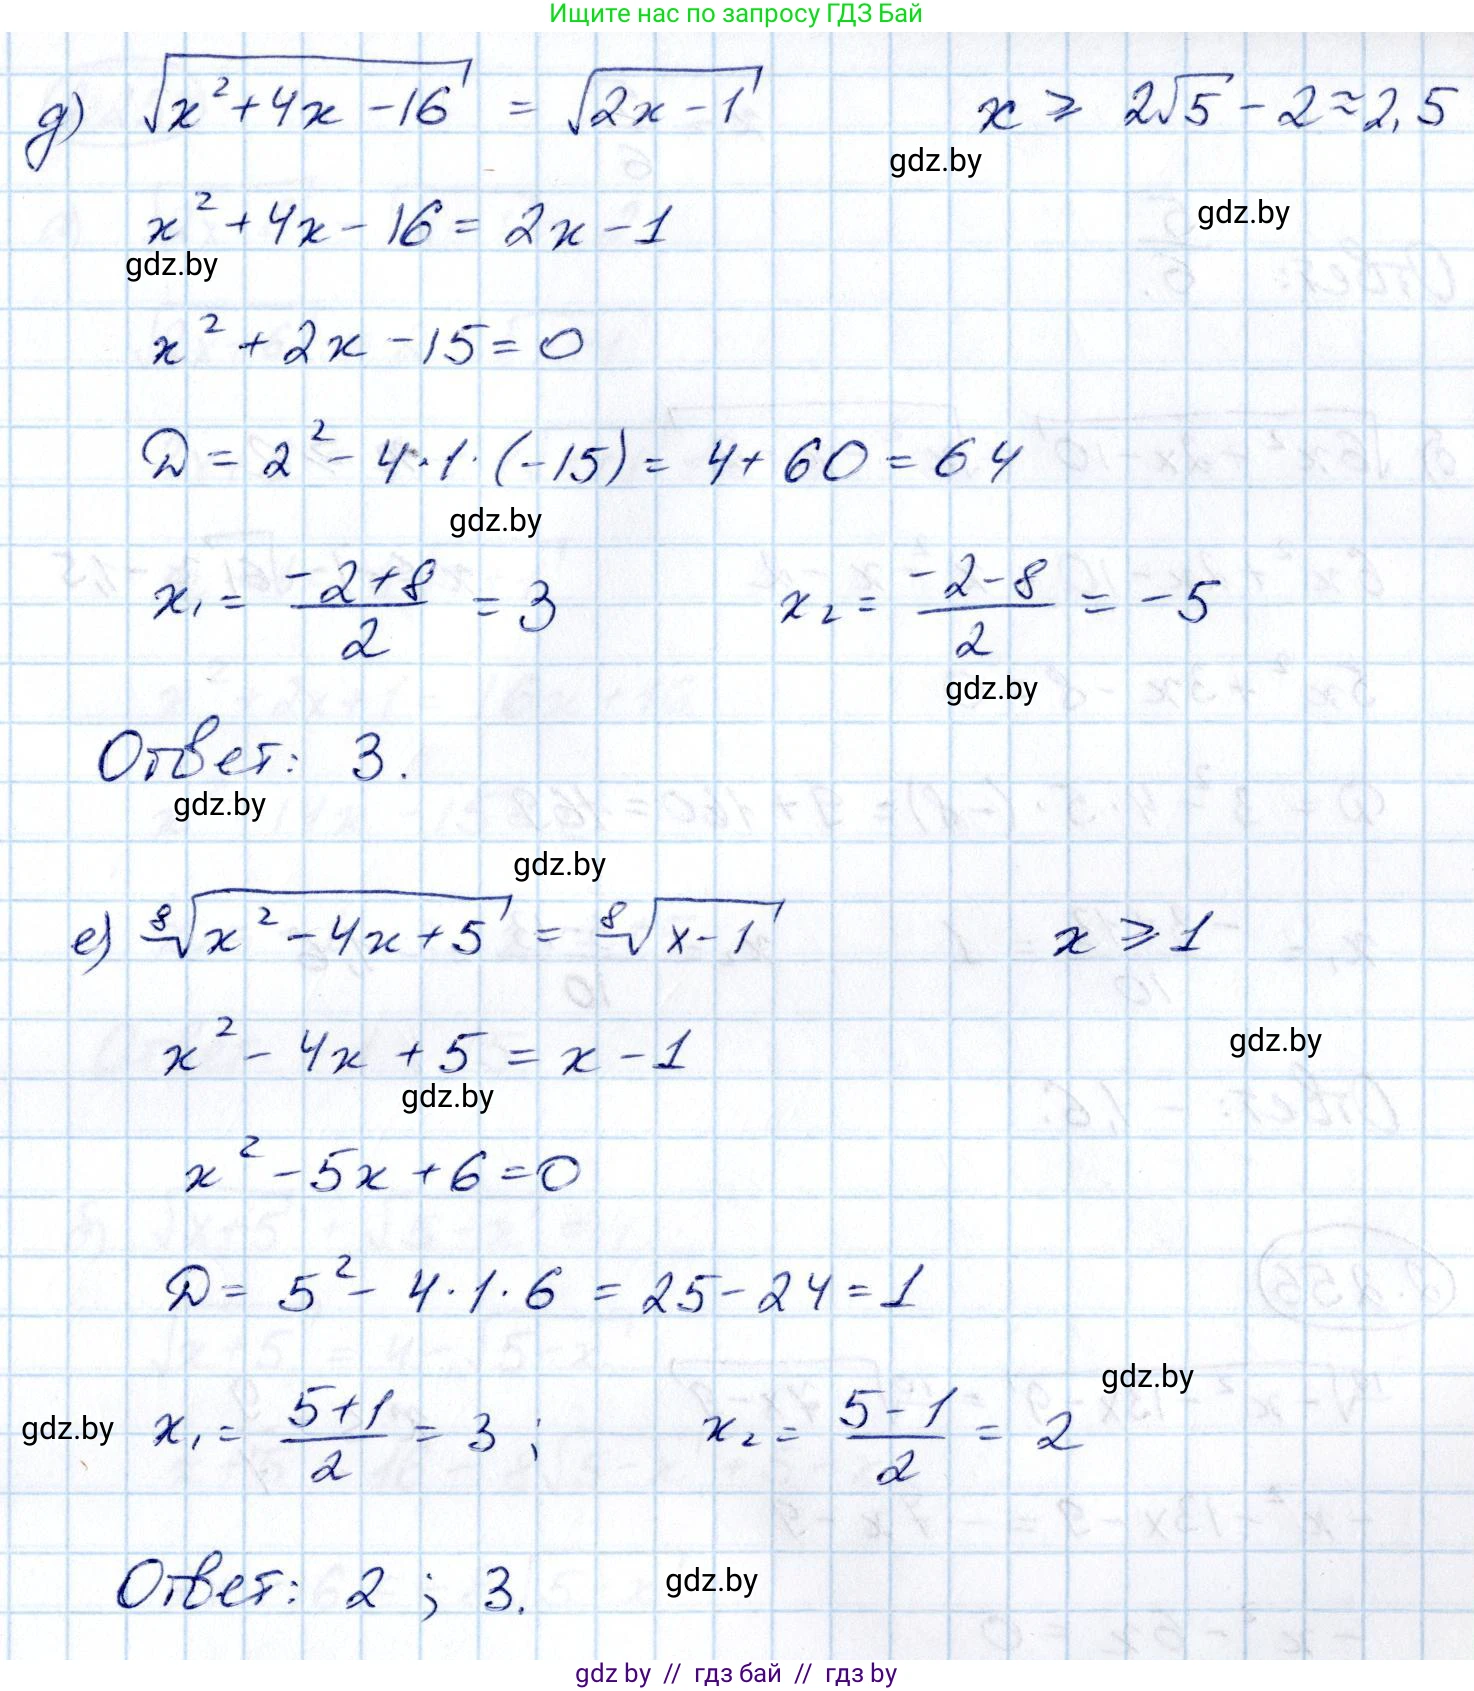 Ищите нас по запросу ГДЗ Бай
д) √(x² + 4x - 16) = √(2x - 1)    x ≥ 2√5 - 2 ≈ 2,5
gdz.by
gdz.by
x² + 4x - 16 = 2x - 1
gdz.by
x² + 2x - 15 = 0
D = 2² - 4·1·(-15) = 4 + 60 = 64
gdz.by
x₁ = (-2+8)/2 = 3    x₂ = (-2-8)/2 = -5
gdz.by
Ответ: 3.
gdz.by
gdz.by
е) ⁸√(x² - 4x + 5) = ⁸√(x - 1)    x ≥ 1
gdz.by
x² - 4x + 5 = x - 1
gdz.by
x² - 5x + 6 = 0
D = 5² - 4·1·6 = 25 - 24 = 1
gdz.by
gdz.by x₁ = (5+1)/2 = 3 ;    x₂ = (5-1)/2 = 2
Ответ: 2 ; 3.
gdz.by
gdz by // гдз бай // гдз by